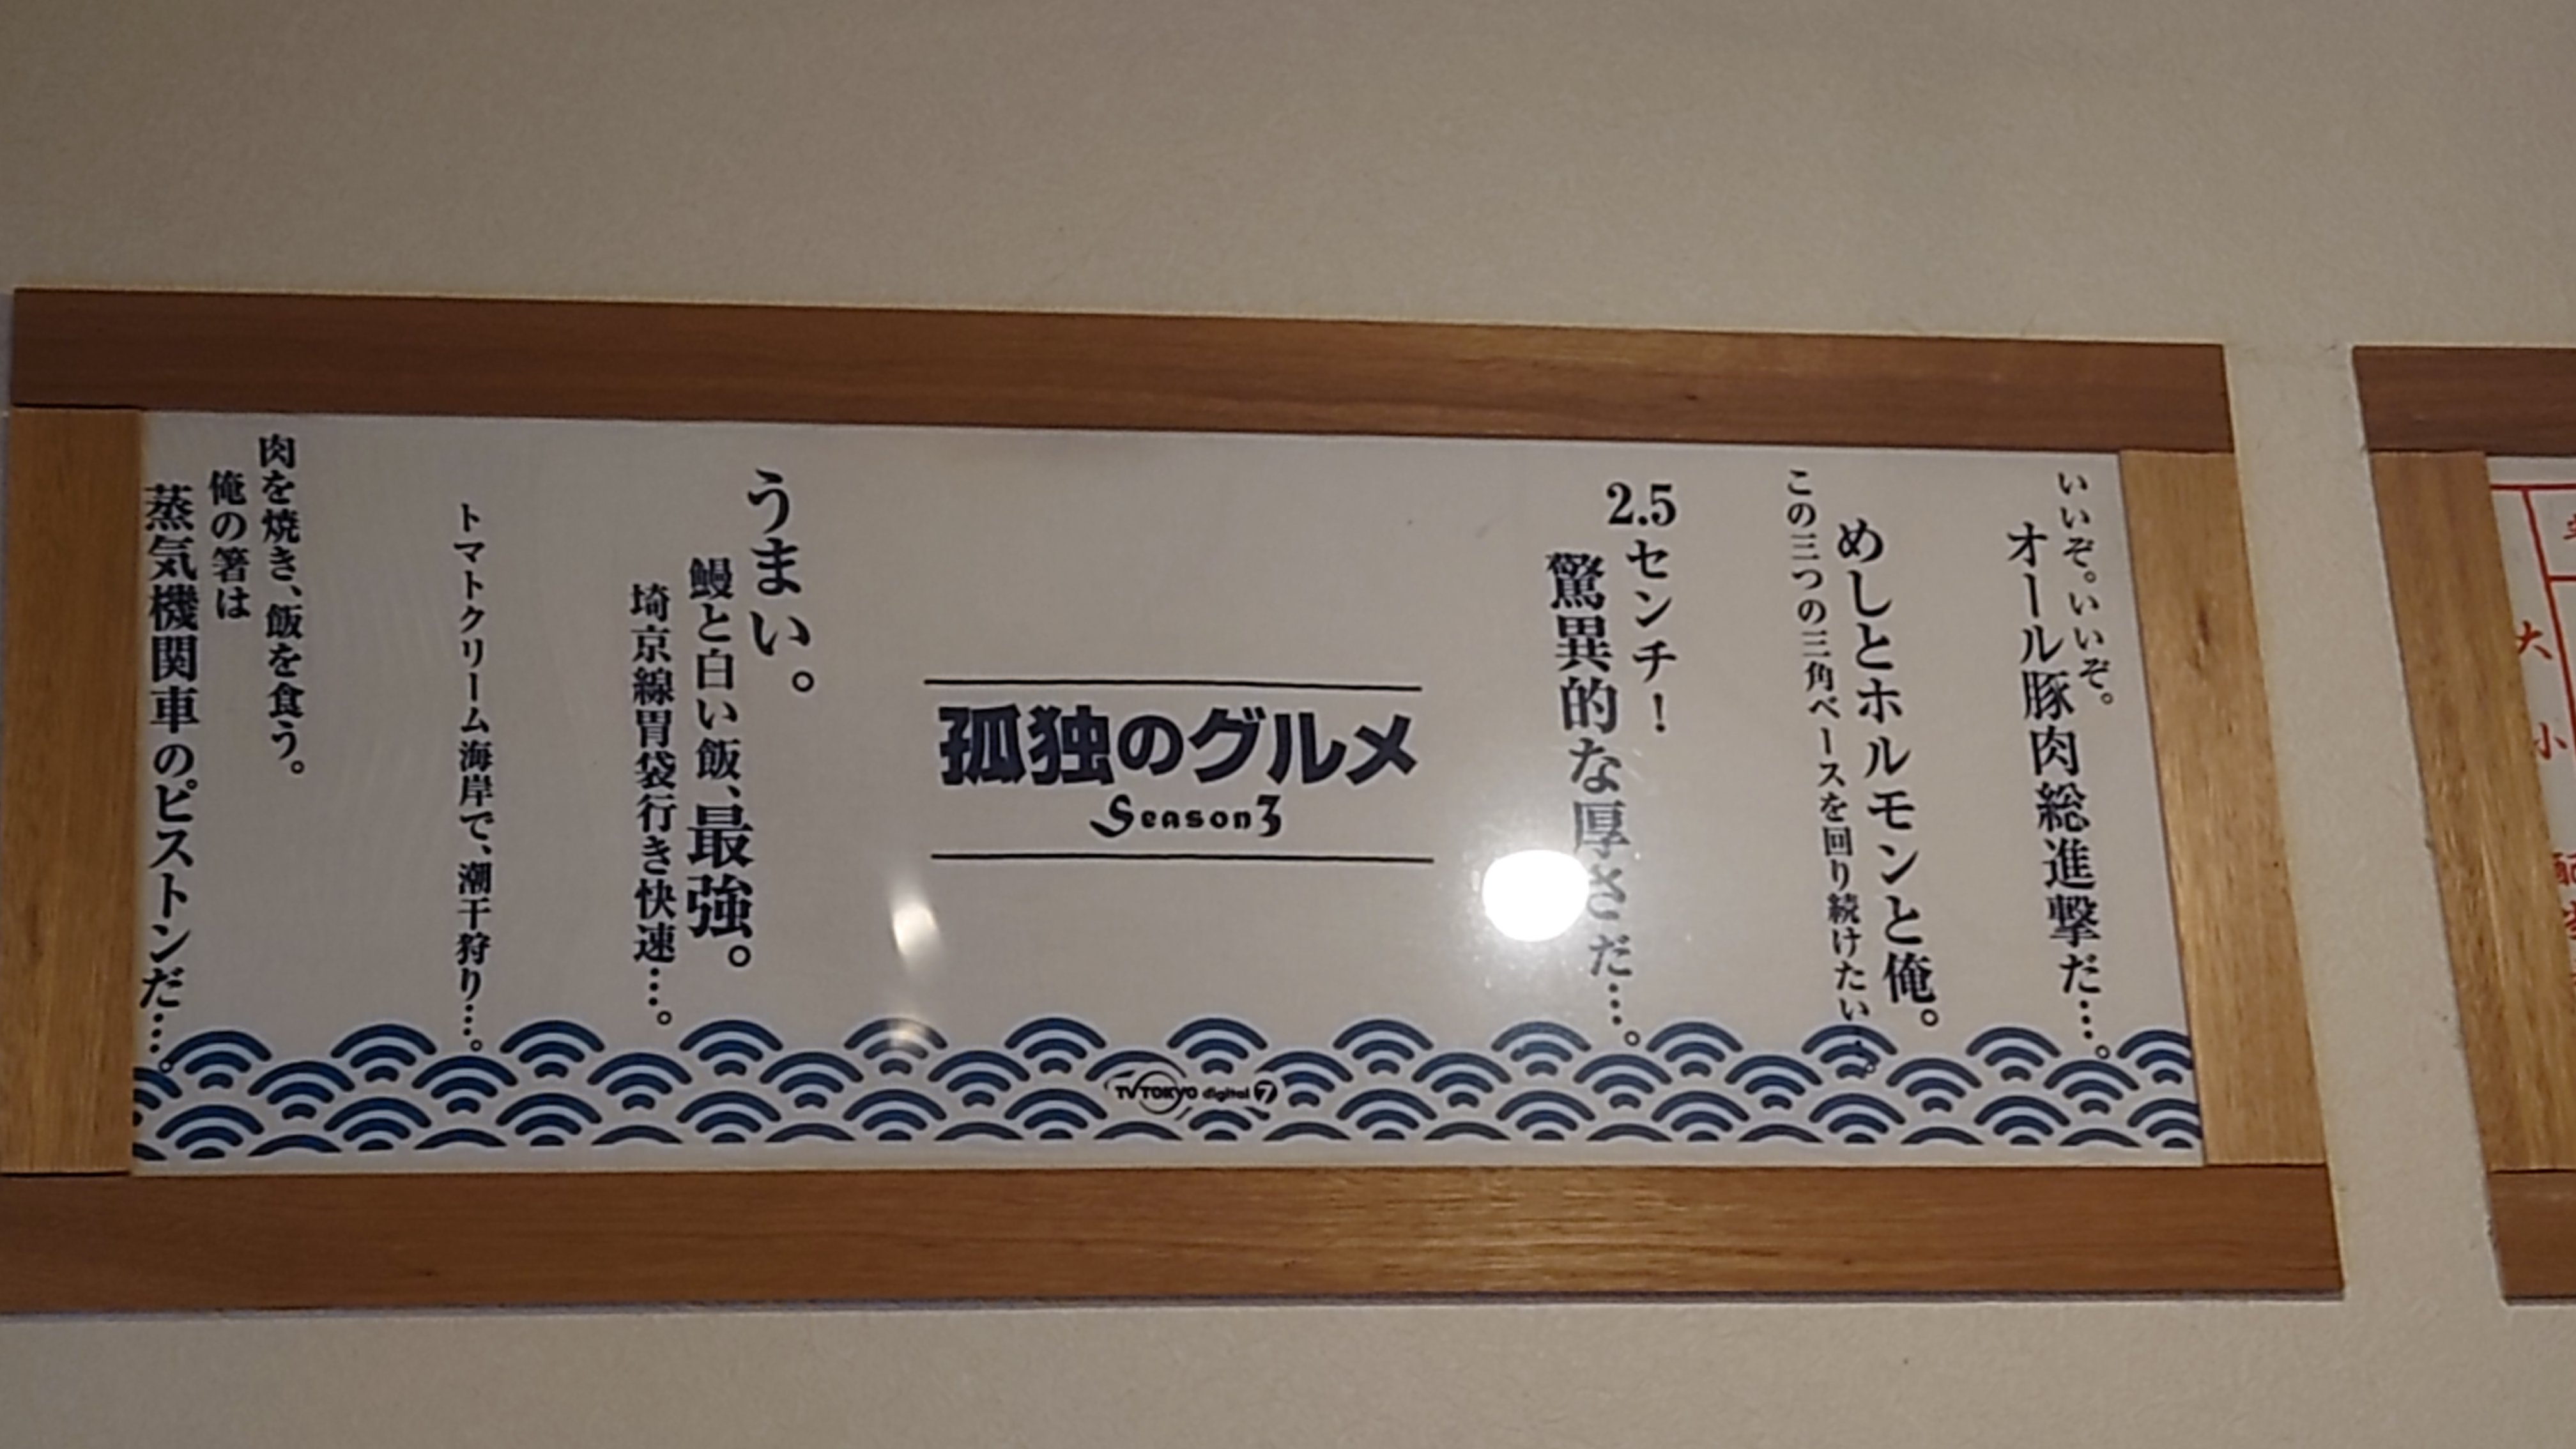 いいぞ。いいぞ。
オール豚肉総進撃だ…。
めしとホルモンと俺。
この三つの三角ベースを回り続けたい…。
2.5センチ！
驚異的な厚さだ…。
孤独のグルメ
Season3
うまい。
鰻と白い飯、最強。
埼京線胃袋行き快速…。
トマトクリーム海岸で、潮干狩り…。
肉を焼き、飯を食う。
俺の箸は
蒸気機関車のピストンだ…。
TV TOKYO digital 7
大
小